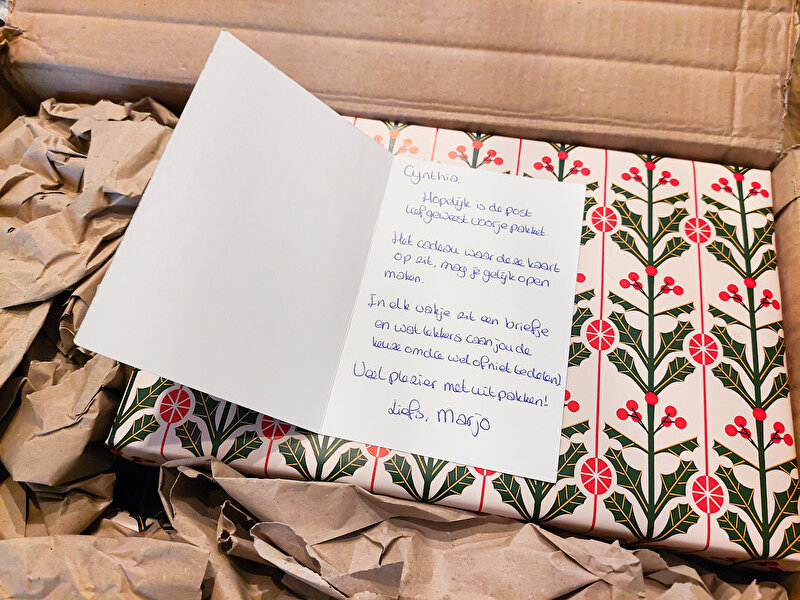 Cynthia,
Hopelijk is de post
lief geweest voor je pakket.
Het cadeau waar deze kaart
op zit, mag je gelijk open
maken.
In elk vakje zit een briefje
en wat lekkers (aan jou de
keuze om die wel of niet te delen)
Veel plezier met uitpakken!
Liefs, Marjo